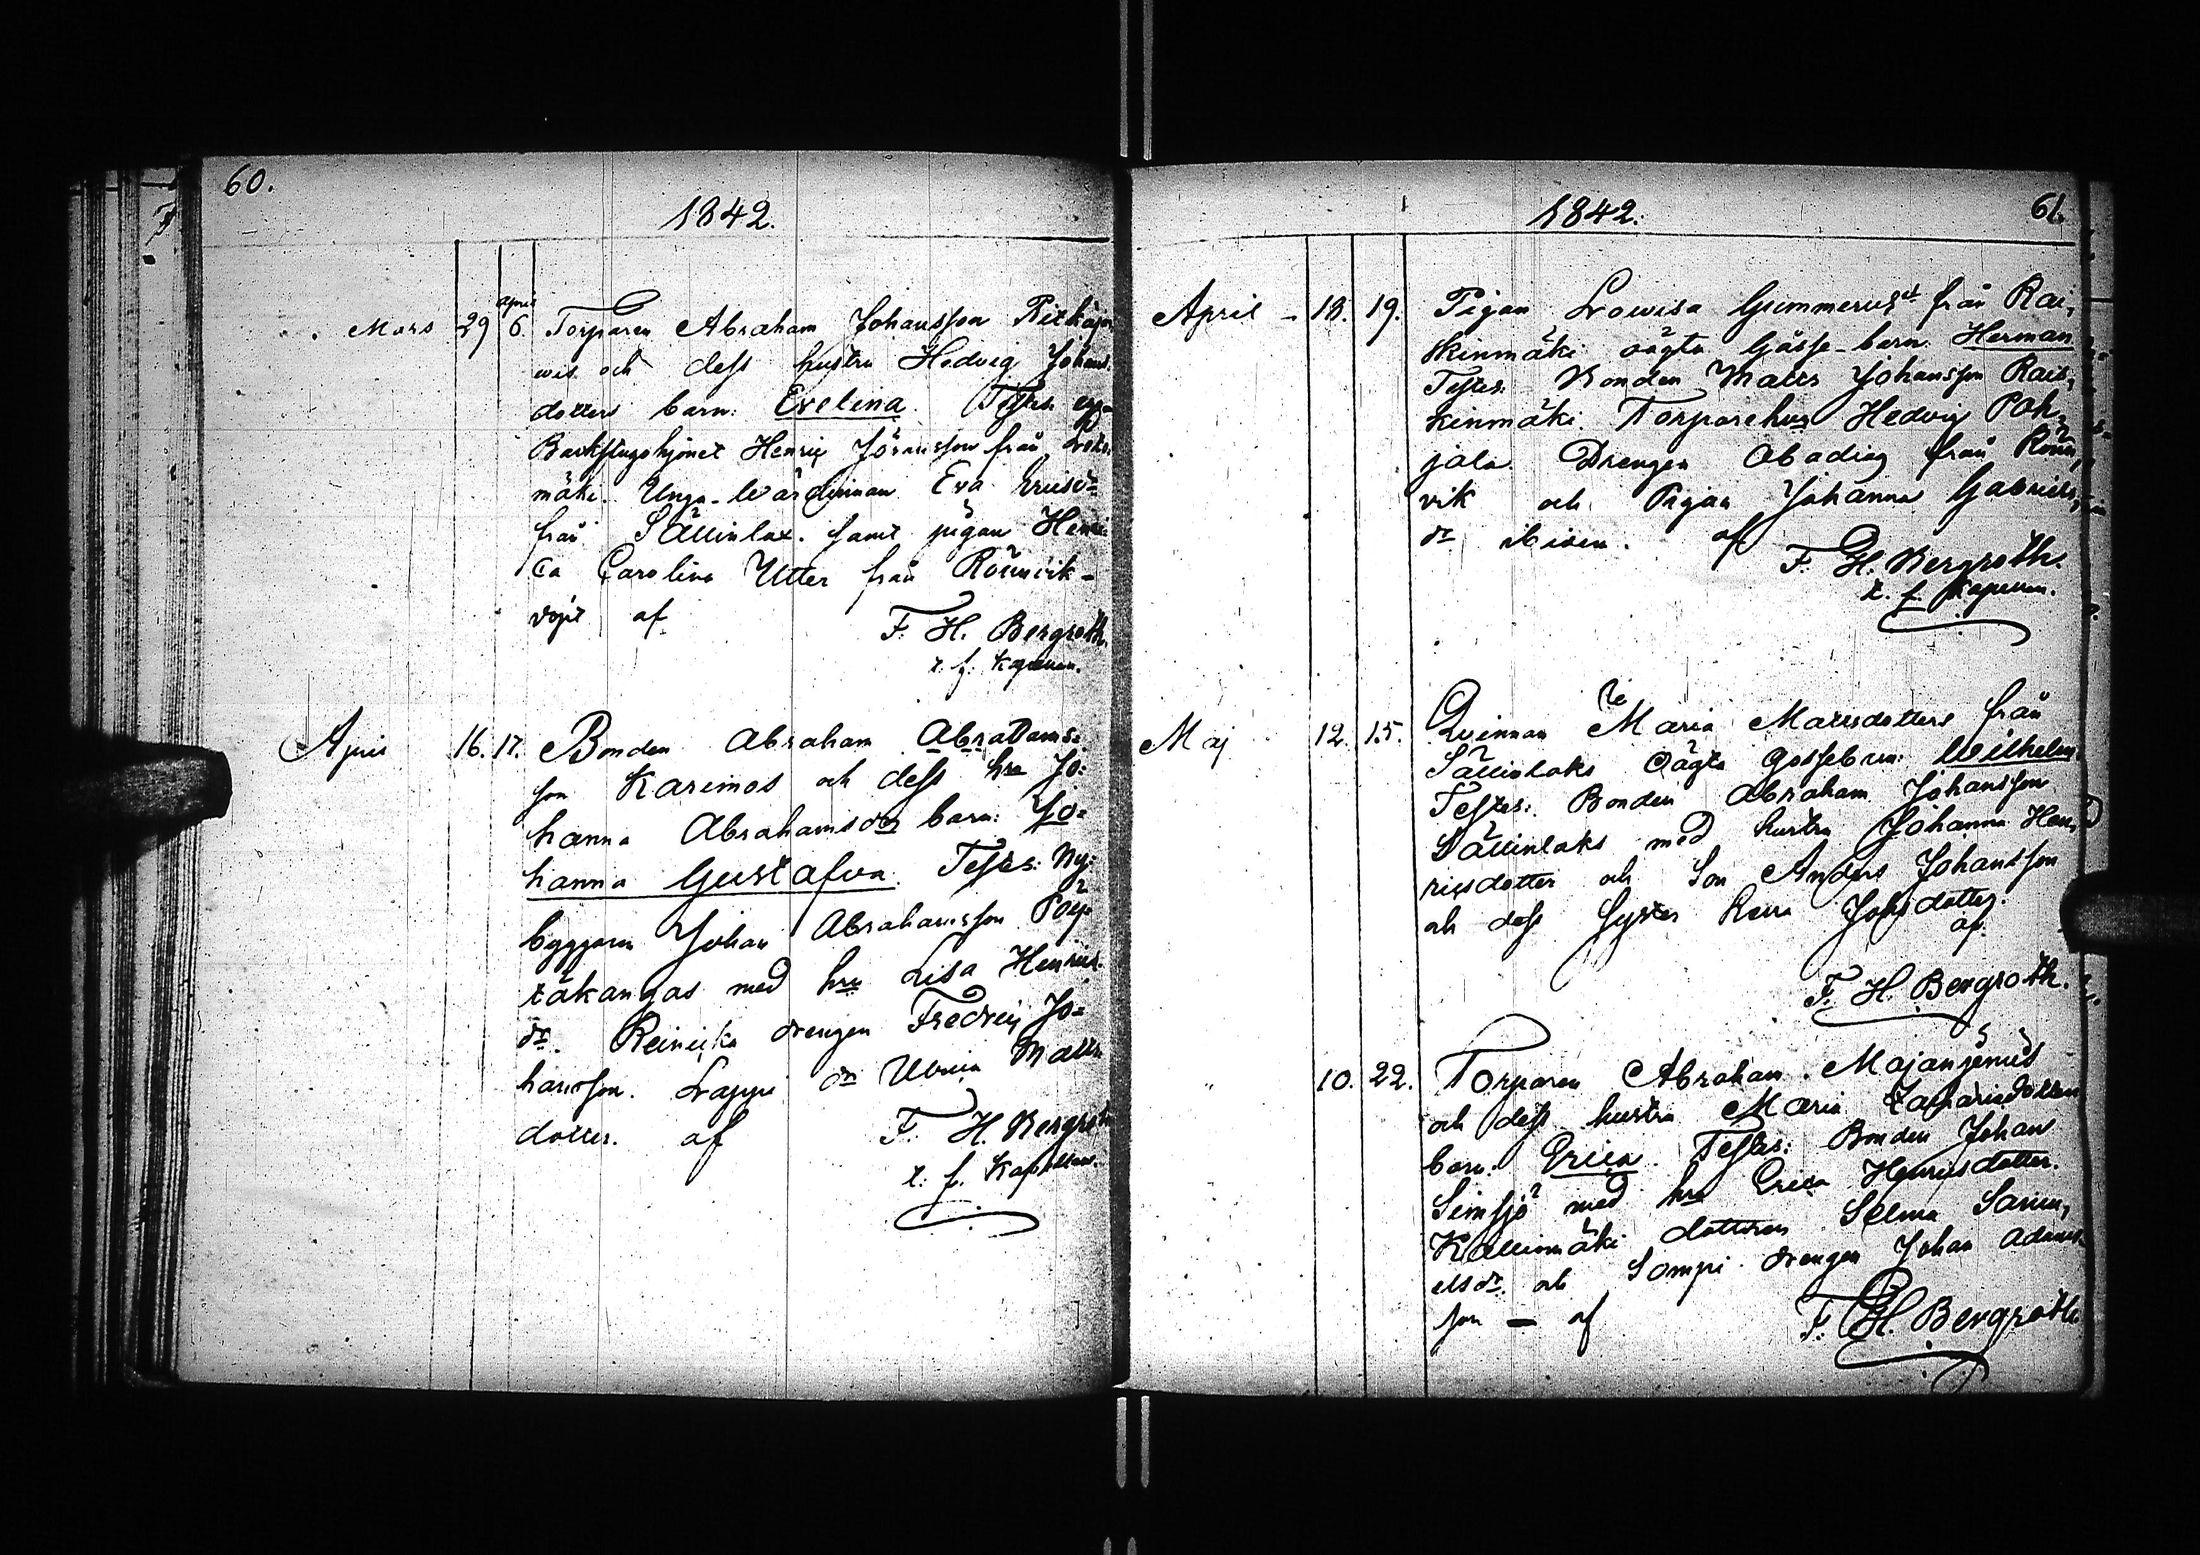 60.
1842.
Mars 29 april 6. Torparen Abraham Johansson Pitkäjär
wis och dess hustru Hedvig Johans
dotters barn: Evelina. Testes
Backstugohjonet Henric Jöransson från
mäki. Unga-Wärdinnan Eva
från Sällinlax. samt pigan Henri
ca Carolina Utter från Rönnvik-
döpt af F. H. Bergroth.
t. f. Kapellan.
April 16. 17. Bonden Abraham Abrahams-
son Karimos och dess hru Jo-
hanna Abrahamsdrs barn: Jo-
hanna Gustafva. Testes: Ny-
byggaren Johan Abrahamsson Pöy-
täkangas med hru Lisa Henrics
dr. Reinicka drengen Fredric Jo-
hansson. Lappi dr Ulrica Matts
dotter. af F. H. Bergroth
t. f. Kapellan.
1842. 61.
April - 18. 19. Pigan Lowisa Gummerus från Rai,
skinmäki oägta Gosse-barn. Herman
Testes. Bonden Matts Johansson Rais,
kinmäki. Torparehus Hedvig Poh,
jala. Drengen Abadias från Rönn,
vik och Pigan Johanna Gabriels,
dr ibidem. af
F. H. Bergroth.
t. f. Kapellan.
Maj 12. 15. Qvinnan Maria Mattsdotters från
Sällinlaks Oägta Gossebarn: Wilhelm.
Testes: Bonden Abraham Johansson
Sällinlaks med hustru Johanna Hen,
ricsdotter och Son Anders Johansson
och dess Syster Johsdotter.
af
F. H. Bergroth.
" 10. 22. Torparen Abraham Majanjemis
och dess hustru Maria Zachariædotters
barn: Erica. Testes: Bonden Johan
Simsjö med hru Erica Henricsdotter.
Kallinmäki dottren Selma Samu,
elsdr. och Sompi drengen Johan Adams
son — af F. H. Bergroth